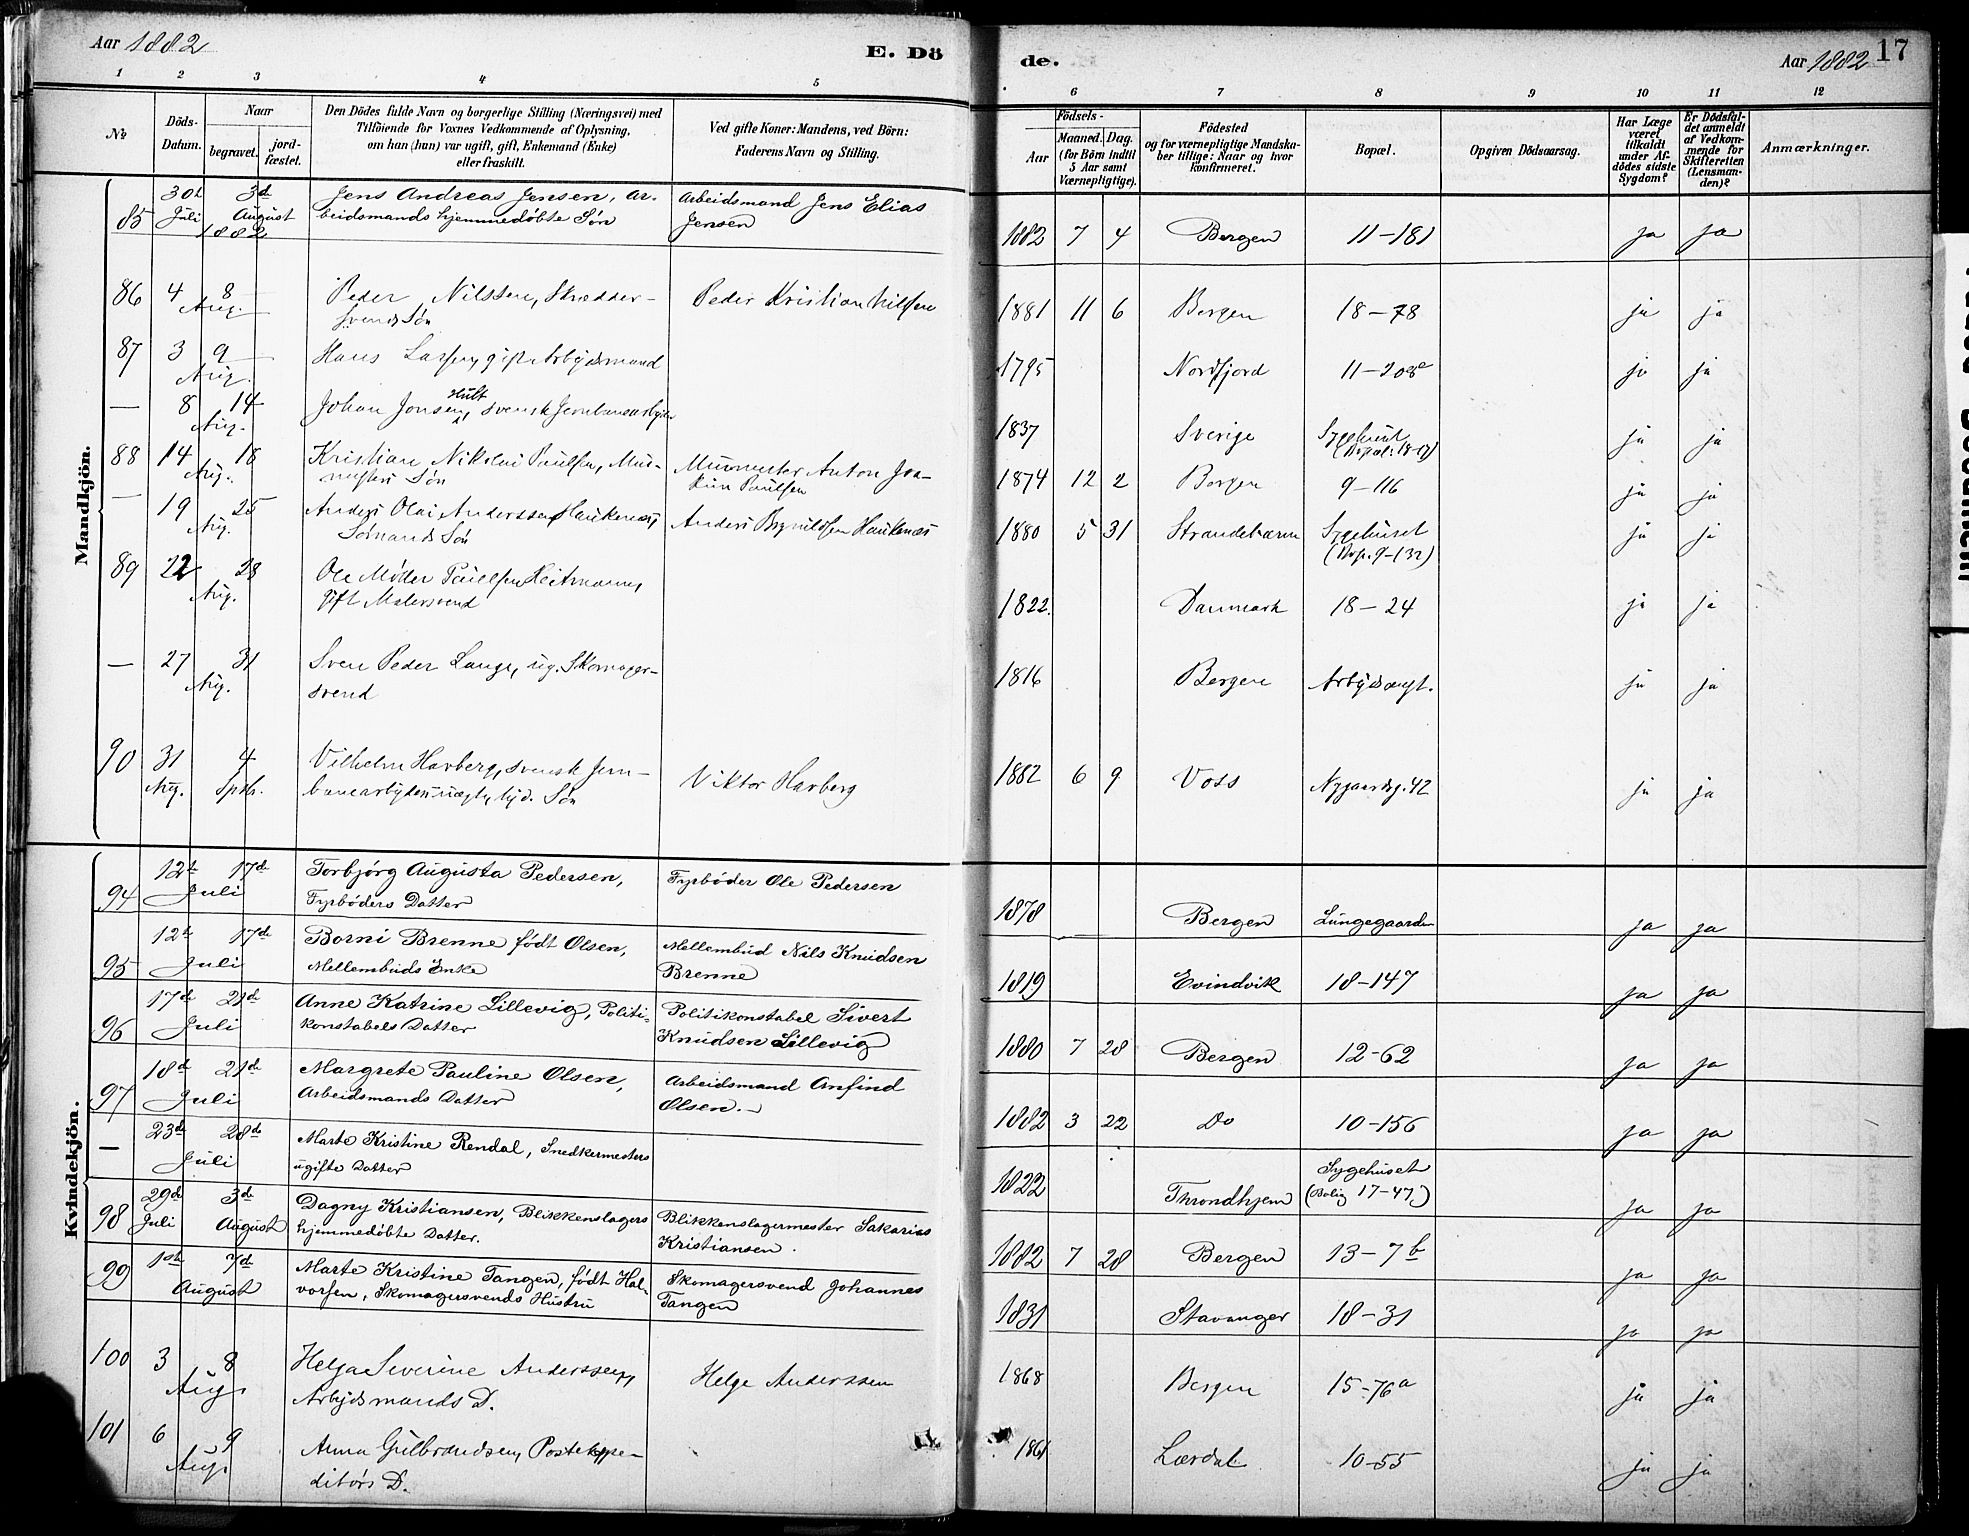 Aar 1882
E. Dö
de.
Aar 1882 17
1 2 3 4 5
6 7 8 9 10 11 12
No
Döds-
Datum.
Naar
begravet.
jord-
fæstet.
Den Dödes fulde Navn og borgerlige Stilling (Næringsvei) med
Tilföiende for Voxnes Vedkommende af Oplysning,
om han (hun) var ugift, gift, Enkemand (Enke)
eller fraskilt.
Ved gifte Koner: Mandens, ved Börn:
Faderens Navn og Stilling.
Födsels-
Aar
Maaned. Dag.
(for Börn indtil
5 Aar samt
Værnepligtige).
Födested
og for værnepligtige Mandska-
ber tillige: Naar og hvor
konfirmeret.
Bopæl.
Opgiven Dödsaarsag.
Har Læge
været
tilkaldt
under Af-
dödes sidste
Sygdom?
Er Dödsfal-
det anmeldt
af Vedkom-
mende for
Skifteretten
(Lensman-
den)?
Anmærkninger.
Mandkjön.
85 30te Juli 3de August 1882
Jens Andreas Jensen, ar-
beidsmands hjemmedøbte Søn
Arbeidsmand Jens Elias
Jensen
1882 7 4 Bergen 11-181 ja ja
86 4 8 Aug.
Peder Nilssen, Skrædder-
svends Søn
Peder Kristian Nilssen
1881 11 6 Bergen 18-78 ja ja
87 3 9 Aug.
Hans Larsen, gift Arbejdsmand
1795 Nordfjord 11-208a ja ja
— 8 14 Aug.
Johan Jonsen Hult, svensk Jernbanearbejder
1837 Sverige Sygehuset
(Bopæl: 18-17) ja ja
88 14 18 Aug.
Kristian Nikolai Paulsen, Mur-
mesters Søn
Murmester Anton Joa-
kim Paulsen
1874 12 2 Bergen 9-116 ja ja
— 19 25 Aug.
Anders Olai Anderssen Haukenæs,
Sømands Søn
Anders Brynildsen Haukenæs
1880 5 31 Strandebarm Sygehuset
(Bop. 9-132) ja ja
89 22 28 Aug.
Ole Møder Paulsen Heitmann,
gift Malersvend
1822. Danmark 18-24 ja ja
— 27 31 Aug.
Sven Peder Lange, ug. Skomager-
svend
1816 Bergen Arbejdsanst. ja ja
90 31 Aug. 4 Septbr.
Vilhelm Havberg, svensk Jern-
banearbejders uægte, hjd. Søn
Viktor Havberg
1882 6 9 Voss Nygaardsg. 42 ja ja
Kvindekjön.
94 12te 17de Juli
Torbjørg Augusta Pedersen,
Fyrbøders Datter
Fyrbøder Ole Pedersen
1878 Bergen Lungegaarden ja ja
95 12te 17de Juli
Borni Brenne født Olsen,
Mellembuds Enke
Mellembud Nils Knudsen
Brenne
1819 Evindvik 18-147 ja ja
96 17de 21de Juli
Anne Katrine Lillevig, Politi-
konstabels Datter
Politikonstabel Sivert
Knudsen Lillevig
1880 7 28 Bergen 12-62 ja ja
97 18de 21de Juli
Margrete Pauline Olsen,
Arbeidsmands Datter
Arbeidsmand Anfind
Olsen.
1882 3 22 Do 10-156 ja ja
— 23de 28de Juli
Marte Kristine Rendal, Snedkermesters
ugifte Datter
1822 Throndhjem Sygehuset
(Bolig 17-47) ja ja
98 29de Juli 3de August
Dagny Kristiansen, Blikkenslagers
hjemmedøbte Datter.
Blikkenslagermester Sakarias
Kristiansen.
1882 7 28 Bergen 13-7b ja ja
99 1ste 7de August
Marte Kristine Tangen, født Hal-
vorsen, Skomagersvends Hustru
Skomagersvend Johannes
Tangen
1831 Stavanger 18-31 ja ja
100 3 8 Aug.
Helga Severine Anderssen,
Arbejdsmands D.
Helge Anderssen
1868 Bergen 15-76a ja ja
101 6 9 Aug.
Anna Gulbrandsen, Postekspe-
ditørs D.
1861 Lærdal 10-55 ja ja